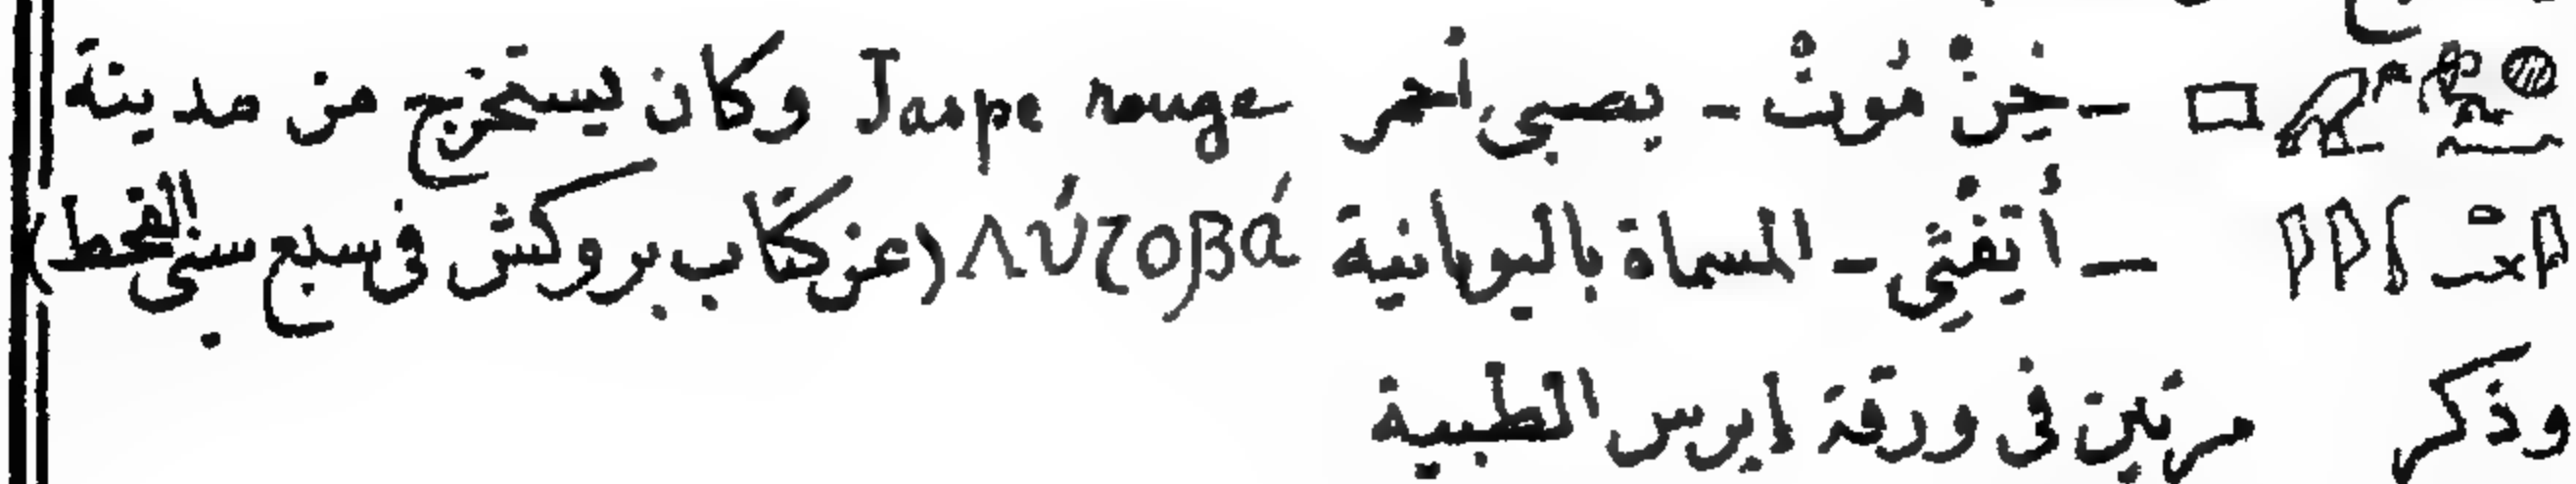 - خِنْ مُوتْ - يصبى أحمر Jaspe rouge وكان يستخرج من مدينة
- أَتِفْتِى - المسماة باليونانية Λύζοβὰ (عن كتاب بروكش فى سبع سنى القحط)
وذكر مرتين فى ورقة إبرس الطبية